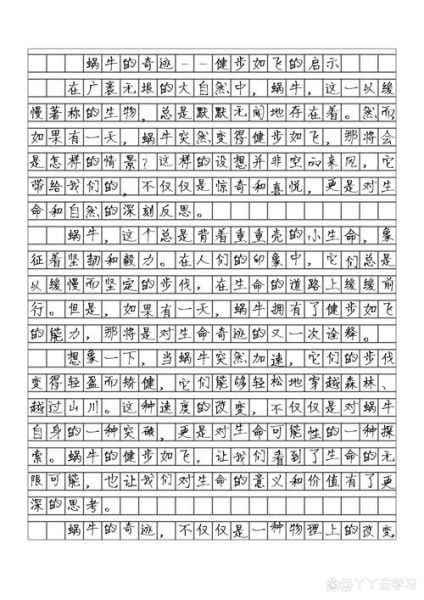 蜗牛的奇迹--健步如飞的启示
在广袤无垠的大自然中，蜗牛，这一以缓
慢著称的生物，总是默默无闻地存在着。然而
如果有一天，蜗牛突然变得健步如飞，那将会
是怎样的情景？这样的设想并非空穴来风，它
带给我们的，不仅仅是惊奇和喜悦，更是对生
命和自然的深刻反思。
蜗牛，这个总是背着重重壳的小生命，象
征着坚韧和毅力。在人们的印象中，它们总是
以缓慢而坚定的步伐，在生命的道路上缓缓前
行。但是，如果有一天，蜗牛拥有了健步如飞
的能力，那将是对生命奇迹的又一次诠释。
想象一下，当蜗牛突然加速，它们的步伐
变得轻盈而矫健，它们能够轻松地穿越森林、
越过山川。这种速度的改变，不仅仅是对蜗牛
自身的一种突破，更是对生命可能性的一种探
索。蜗牛的健步如飞，让我们看到了生命的无
限可能，也让我们对生命的意义和价值有了更
深的思考。
蜗牛的奇迹，不仅仅是一种物理上的改变，
@丫丫去学习